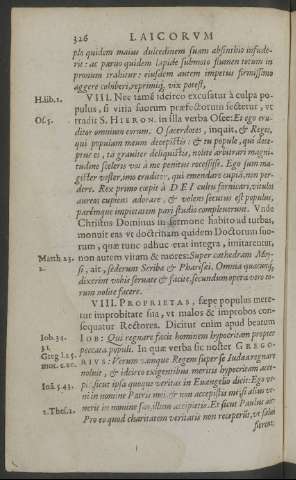 326 LAICORVM
plo quidem maius dulcedinem suam absinthio infude-
rit: ac paruo quidem lapide submoto flumen totum in
pronum trahitur: eiusdem autem impetus firmissimo
aggere cohiberi, reprimiq́, vix potest,
H.lib.1. VIII. Nec tamē idcirco excusatur à culpa po-
pulus, si vitia suorum præfectorum sectetur, vt
Os.5. tradit S. HIERON. in illa verba Osee: Et ego eru-
ditor omnium eorum. O sacerdotes, inquit, & Reges,
qui populum meum decepistis: & tu popule, qui dece-
ptus es, ta grauiter deliquistis, nolite arbitrari magni-
tudine sceleris vos à me penitus recessisse. Ego sum ma-
gister vester, imo eruditor, qui emendare cupio, non per-
dere. Rex primo cœpit à DEI cultu fornicari, vitulos
aureos cupiens adorare, & volens secutus est populus,
parēmque impietatem pari studio complexerunt. Vnde
Christus Dominus in sermone habito ad turbas,
monuit eas vt doctrinam quidem Doctorum suo-
rum, quæ tunc adhuc erat integra, imitarentur,
non autem vitam & mores: Super cathedram Moy-
Matth.23. si, ait, sederunt Scribæ & Pharisæi. Omnia quæcunq́,
2. dixerint vobis seruate & facite, secundum opera vero eo-
rum nolite facere.
VIII. PROPRIETAS, sæpe populus mere-
tur improbitate sua, vt malos & improbos con-
sequatur Rectores. Dicitur enim apud beatum
Iob.34. IOB: Qui regnare facit hominem hypocritam propter
31. peccata populi. In quæ verba sic noster GREGO-
Greg.l.25. RIVS: Verum namque Regem super se Iudæa regnare
mor. c.20. noluit, & idcirco exigentibus meritis hypocritam acce-
Ioā.5.43. pit, sicut ipsa quoque veritas in Euangelio dicit: Ego ve-
ni in nomine Patris mei, & non accepistis me; si alius ve-
2.Thes.2. nerit in nomine suo, illum accipietis. Et sicut Paulus ait:
Pro eo quod charitatem veritatis non receperūt, vt salui
fierent,